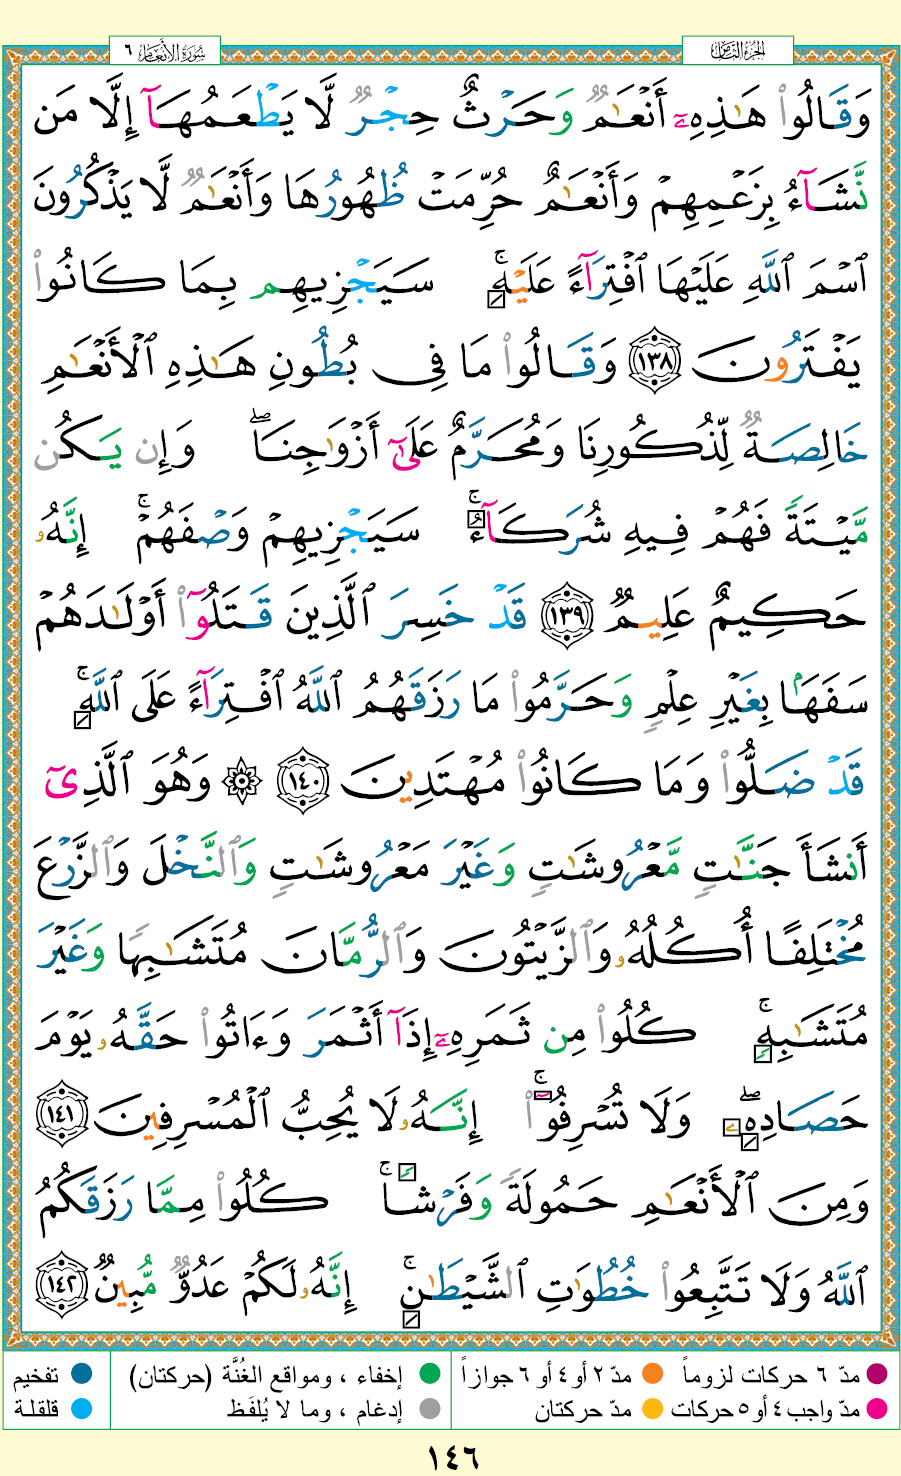 سُورَةُ الأَنْعَام ٦
الجُزْءُ الثَّامِن
وَقَالُوا۟ هَـٰذِهِۦٓ أَنْعَـٰمٌۭ وَحَرْثٌ حِجْرٌۭ لَّا يَطْعَمُهَآ إِلَّا مَن
نَّشَآءُ بِزَعْمِهِمْ وَأَنْعَـٰمٌ حُرِّمَتْ ظُهُورُهَا وَأَنْعَـٰمٌۭ لَّا يَذْكُرُونَ
ٱسْمَ ٱللَّهِ عَلَيْهَا ٱفْتِرَآءً عَلَيْهِ ۚ سَيَجْزِيهِم بِمَا كَانُوا۟
يَفْتَرُونَ ١٣٨ وَقَالُوا۟ مَا فِى بُطُونِ هَـٰذِهِ ٱلْأَنْعَـٰمِ
خَالِصَةٌۭ لِّذُكُورِنَا وَمُحَرَّمٌ عَلَىٰٓ أَزْوَٰجِنَا ۖ وَإِن يَكُن
مَّيْتَةًۭ فَهُمْ فِيهِ شُرَكَآءُ ۚ سَيَجْزِيهِمْ وَصْفَهُمْ ۚ إِنَّهُۥ
حَكِيمٌ عَلِيمٌۭ ١٣٩ قَدْ خَسِرَ ٱلَّذِينَ قَتَلُوٓا۟ أَوْلَـٰدَهُمْ
سَفَهًۢا بِغَيْرِ عِلْمٍۢ وَحَرَّمُوا۟ مَا رَزَقَهُمُ ٱللَّهُ ٱفْتِرَآءً عَلَى ٱللَّهِ ۚ
قَدْ ضَلُّوا۟ وَمَا كَانُوا۟ مُهْتَدِينَ ١٤٠ ۞ وَهُوَ ٱلَّذِىٓ
أَنشَأَ جَنَّـٰتٍۢ مَّعْرُوشَـٰتٍۢ وَغَيْرَ مَعْرُوشَـٰتٍۢ وَٱلنَّخْلَ وَٱلزَّرْعَ
مُخْتَلِفًا أُكُلُهُۥ وَٱلزَّيْتُونَ وَٱلرُّمَّانَ مُتَشَـٰبِهًۭا وَغَيْرَ
مُتَشَـٰبِهٍۢ ۚ كُلُوا۟ مِن ثَمَرِهِۦٓ إِذَآ أَثْمَرَ وَءَاتُوا۟ حَقَّهُۥ يَوْمَ
حَصَادِهِۦ ۖ وَلَا تُسْرِفُوٓا۟ ۚ إِنَّهُۥ لَا يُحِبُّ ٱلْمُسْرِفِينَ ١٤١
وَمِنَ ٱلْأَنْعَـٰمِ حَمُولَةًۭ وَفَرْشًۭا ۚ كُلُوا۟ مِمَّا رَزَقَكُمُ
ٱللَّهُ وَلَا تَتَّبِعُوا۟ خُطُوَٰتِ ٱلشَّيْطَـٰنِ ۚ إِنَّهُۥ لَكُمْ عَدُوٌّۭ مُّبِينٌۭ ١٤٢
مدّ ٦ حركات لزوماً مدّ ٢ أو ٤ أو ٦ جوازاً إخفاء ، ومواقع الغُنَّة (حركتان) تفخيم
مدّ واجب ٤ أو ٥ حركات مدّ حركتان إدغام ، وما لا يُلفَظ قلقلة
١٤٦